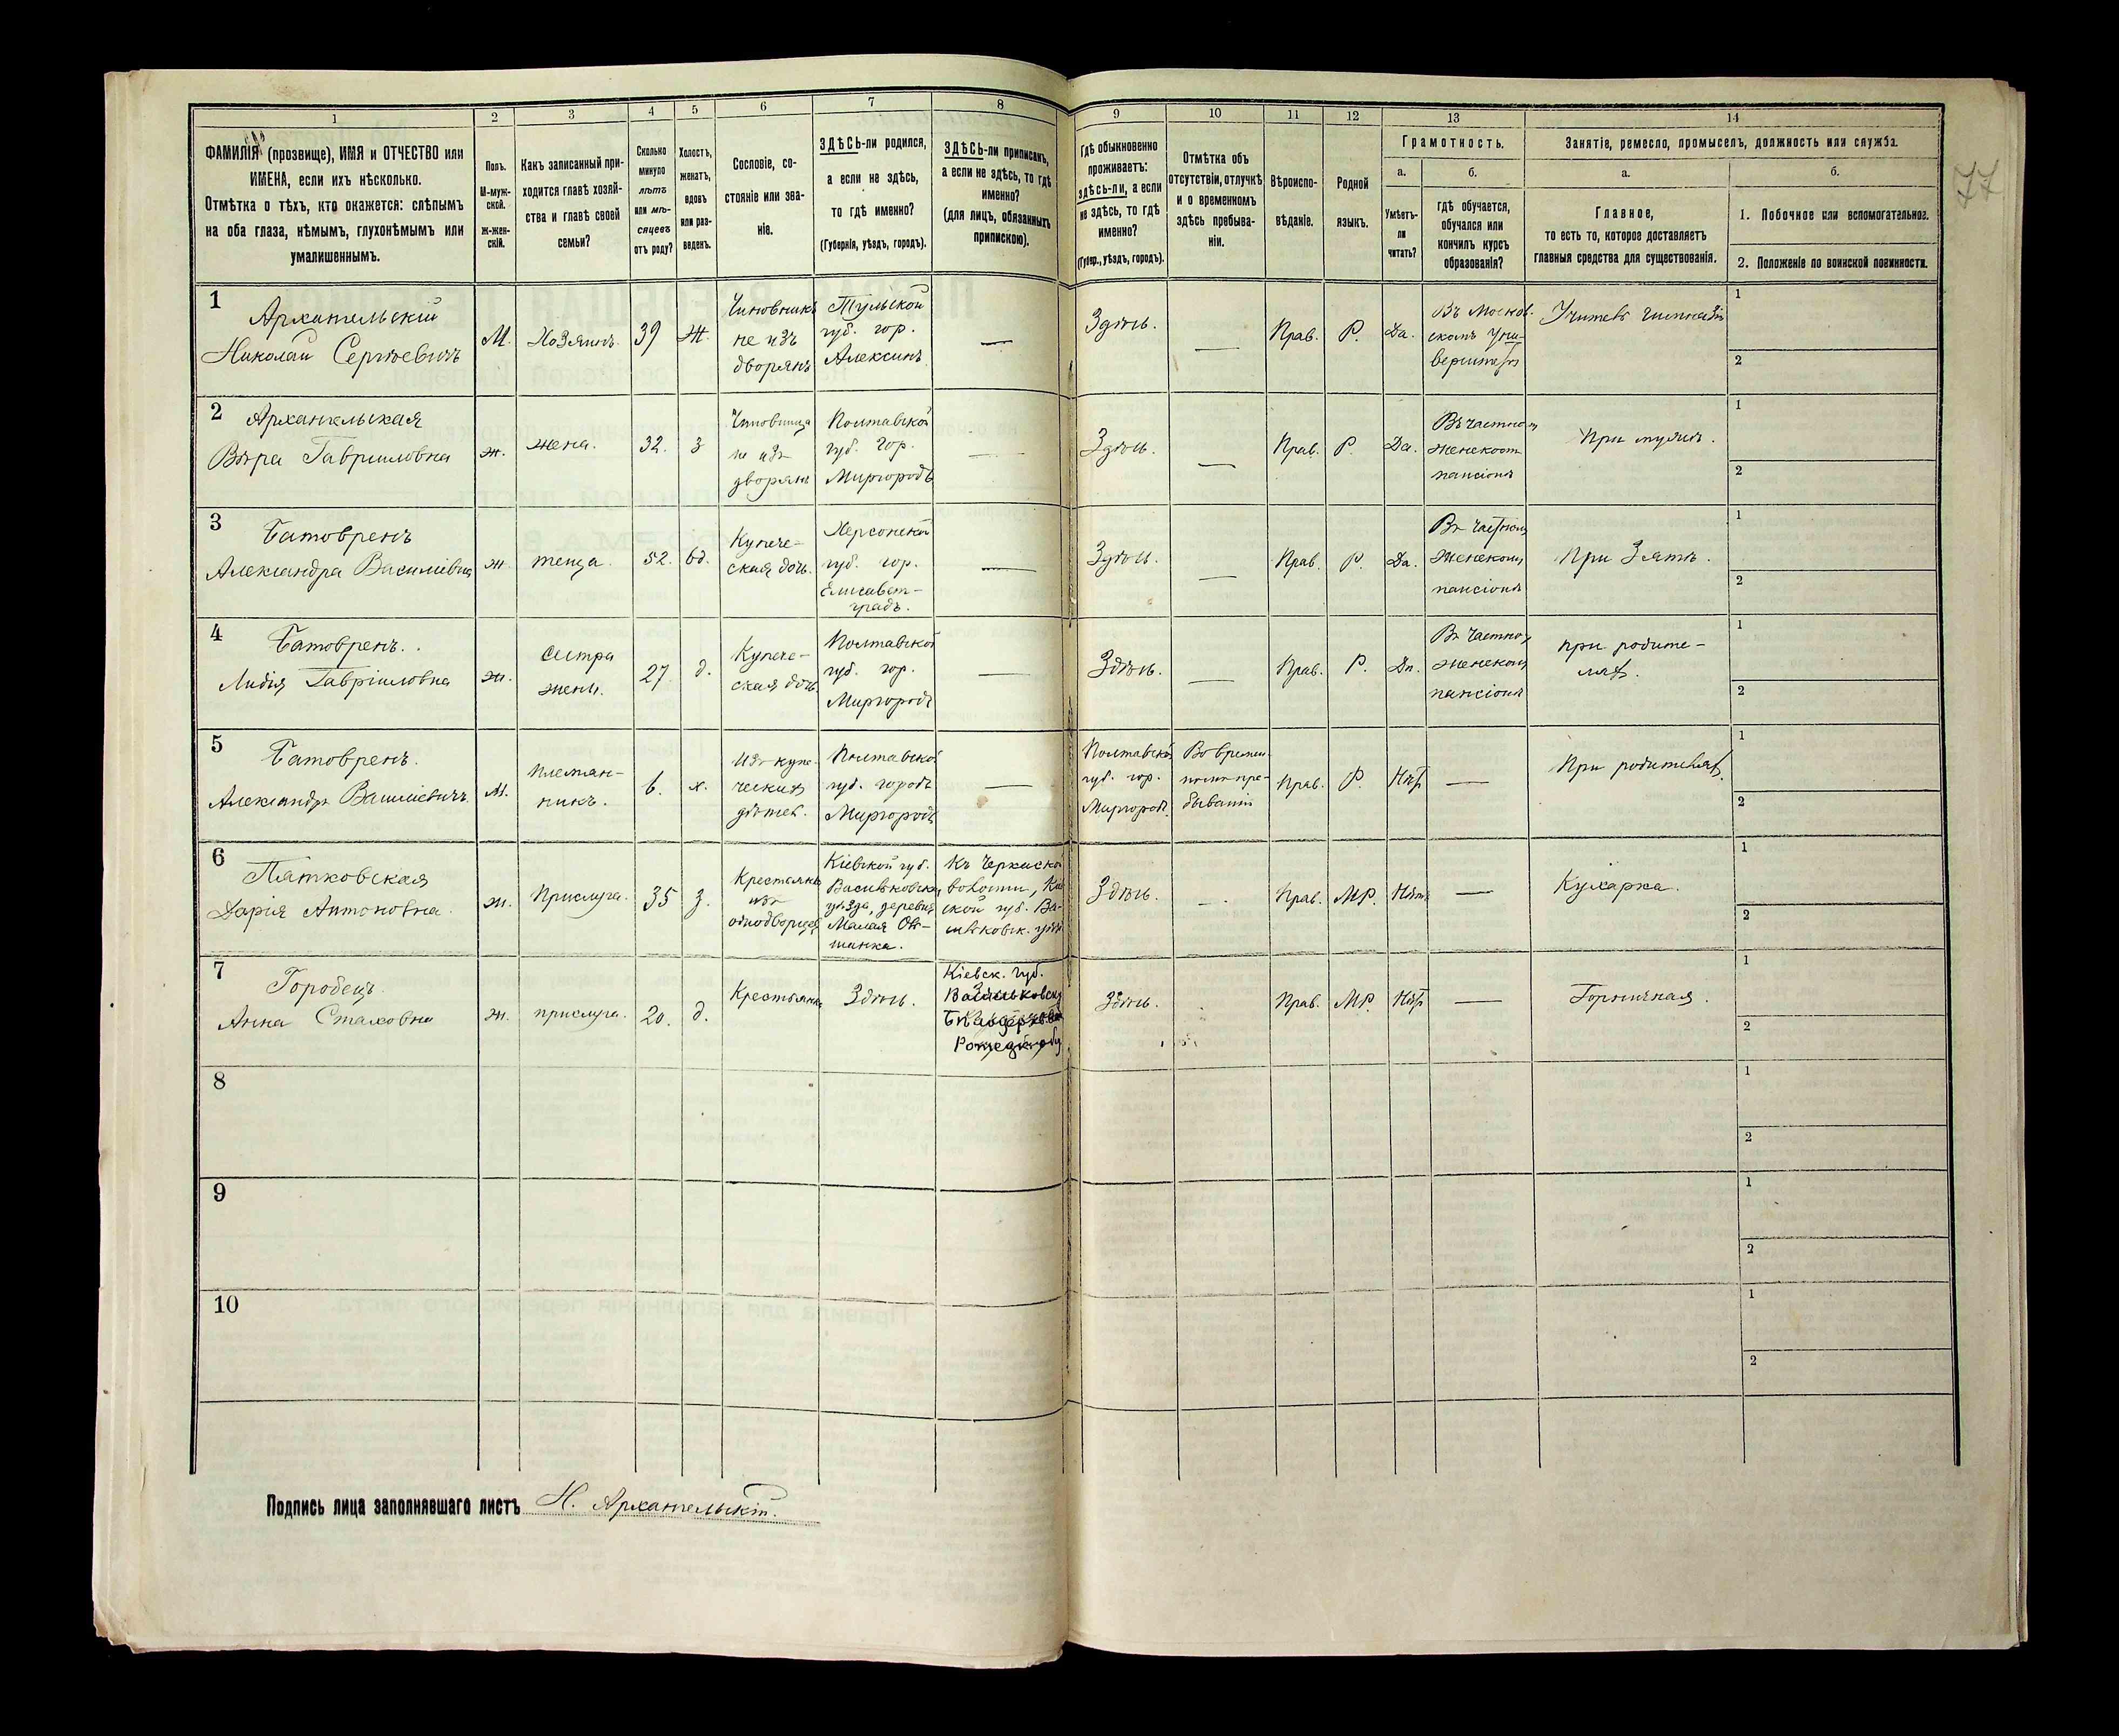 77
1
2
3
4
5
6
7
8
9
10
11
12
13
14
ФАМИЛІЯ (прозвище), ИМЯ и ОТЧЕСТВО или
ИМЕНА, если ихъ нѣсколько.
Отмѣтка о тѣхъ, кто окажется: слѣпымъ
на оба глаза, нѣмымъ, глухонѣмымъ или
умалишеннымъ.
Полъ.
М-муж-
ской.
Ж-жен-
скій.
Какъ записанный при-
ходится главѣ хозяй-
ства и главѣ своей
семьи?
Сколько
минуло
лѣтъ
или мѣ-
сяцевъ
отъ роду?
Холостъ,
женатъ,
вдовъ
или раз-
веденъ.
Сословіе, со-
стояніе или зва-
ніе.
ЗДѢСЬ-ли родился,
а если не здѣсь,
то гдѣ именно?
(Губернія, уѣздъ, городъ).
ЗДѢСЬ-ли приписанъ,
а если не здѣсь, то гдѣ
именно?
(для лицъ, обязанныхъ
припискою).
Гдѣ обыкновенно
проживаетъ:
здѣсь-ли, а если
не здѣсь, то гдѣ
именно?
(Губер., уѣздъ, городъ).
Отмѣтка объ
отсутствіи, отлучкѣ
и о временномъ
здѣсь пребыва-
ніи.
Вѣроиспо-
вѣданіе.
Родной
языкъ.
Грамотность.
а.
Умѣетъ-
ли
читать?
б.
гдѣ обучается,
обучался или
кончилъ курсъ
образованія?
Занятіе, ремесло, промыселъ, должность или служба.
а.
Главное,
то есть то, которое доставляетъ
главныя средства для существованія.
б.
1. Побочное или вспомогательное.
2. Положеніе по воинской повинности.
1
Архангельскій
Николай Сергѣевичъ
М.
Хозяинъ.
39
Ж.
Чиновникъ
не изъ
дворянъ
Тульской
губ. гор.
Алексинъ
—
Здѣсь.
—
Прав.
Р.
Да.
Въ Москов-
скомъ Уни-
верситетѣ
Учитель гимназіи
1
2
2
Архангельская
Вѣра Гавриловна
ж.
жена.
32.
з
Чиновница
не изъ
дворянъ
Полтавской
губ. гор.
Миргородъ
—
Здѣсь.
—
Прав.
Р.
Да.
Въ частномъ
женскомъ
пансіонѣ
При мужѣ.
1
2
3
Батовренъ
Александра Василіевна
ж.
теща.
52.
вд.
Купече-
ская дочь.
Херсонской
губ. гор.
Елисавет-
градъ.
—
Здѣсь.
—
Прав.
Р.
Да.
Въ частномъ
женскомъ
пансіонѣ
При Зятѣ.
1
2
4
Батовренъ.
Лидія Гавріиловна
ж.
сестра
жены.
27
д.
Купече-
ская дочь.
Полтавской
губ. гор.
Миргородъ
—
Здѣсь.
—
Прав.
Р.
Да.
Въ частномъ
женскомъ
пансіонѣ
при родите-
ляхъ.
1
2
5
Батовренъ.
Александръ Василіевичъ
М.
племян-
никъ.
6.
х.
Изъ купе-
ческихъ
дѣтей.
Полтавской
губ. городъ
Миргородъ
—
Полтавской
губ. гор.
Миргородъ.
Во времен-
номъ пре-
бываніи
Прав.
Р.
Нѣтъ
—
При родителяхъ.
1
2
6
Пятковская
Дарія Антоновна.
ж.
Прислуга.
35
з.
Крестьянка
изъ
однодворцевъ
Кіевской губ.
Васильковскаго
уѣзда, деревня
Малая Ов-
шинка.
Здѣсь.
Прав.
МР.
Нѣтъ
—
Кухарка.
1
2
7
Городецъ.
Анна Стаховна
ж.
прислуга.
20.
д.
Крестьянка
Здѣсь.
Кіевск. губ.
Здѣсь.
Прав.
МР.
Нѣтъ
—
Горничная.
1
2
8
1
2
9
1
2
10
1
2
Подпись лица заполнявшаго листъ Н. Архангельскій.